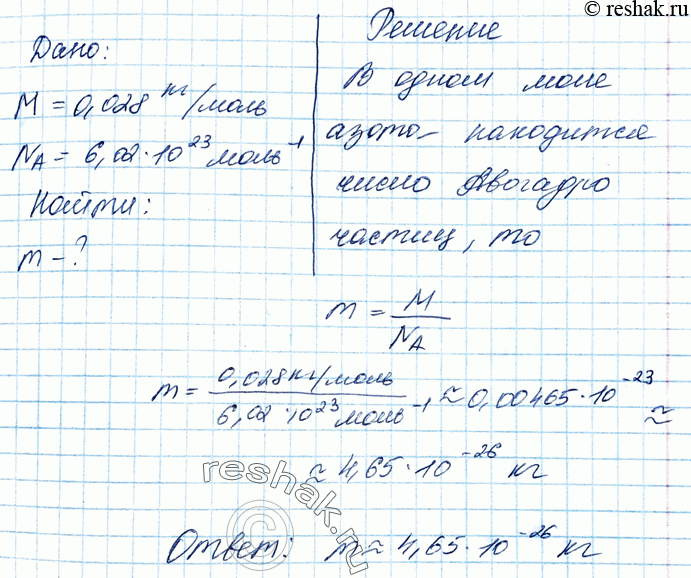 © reshak.ru
Дано:
M = 0,028 кг/моль
N_A = 6,02·10^23 моль^-1
Найти:
m - ?
Решение
В одном моле
азота находится
число Авогадро
частиц, то
m = M/N_A
m = 0,028 кг/моль / 6,02·10^23 моль^-1 ≈ 0,00465·10^-23 ≈
≈ 4,65·10^-26 кг
reshak.ru
©
Ответ: m ≈ 4,65·10^-26 кг